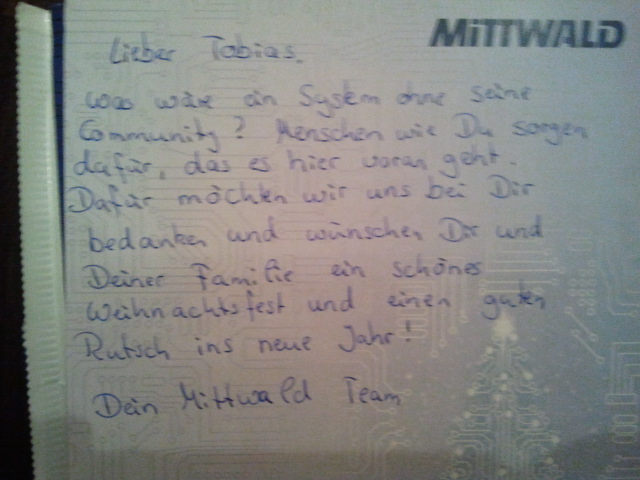 MITTWALD
Lieber Tobias,
was wäre ein System ohne seine
Community? Menschen wie Du sorgen
dafür, das es hier voran geht.
Dafür möchten wir uns bei Dir
bedanken und wünschen Dir und
Deiner Familie ein schönes
Weihnachtsfest und einen guten
Rutsch ins neue Jahr!
Dein Mittwald Team